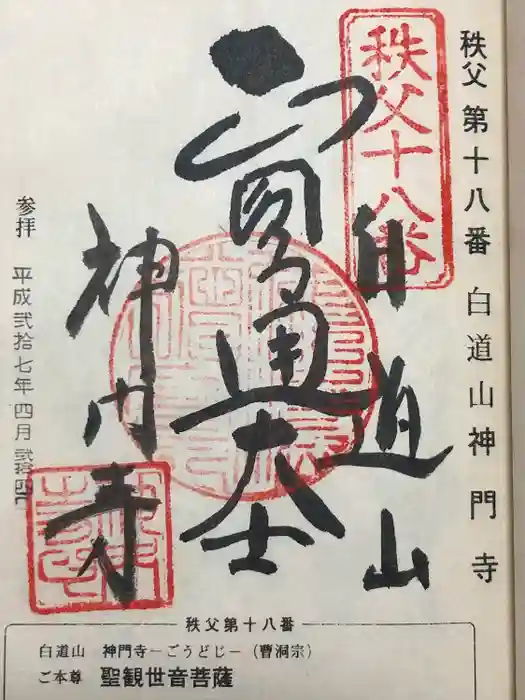 秩父第十八番 白道山神門寺
秩父十八番
白道山
圓通大士
神門寺
参拝 平成弐拾七年四月弐拾四日
秩父第十八番
白道山 神門寺−ごうどじ−(曹洞宗)
ご本尊 聖観世音菩薩